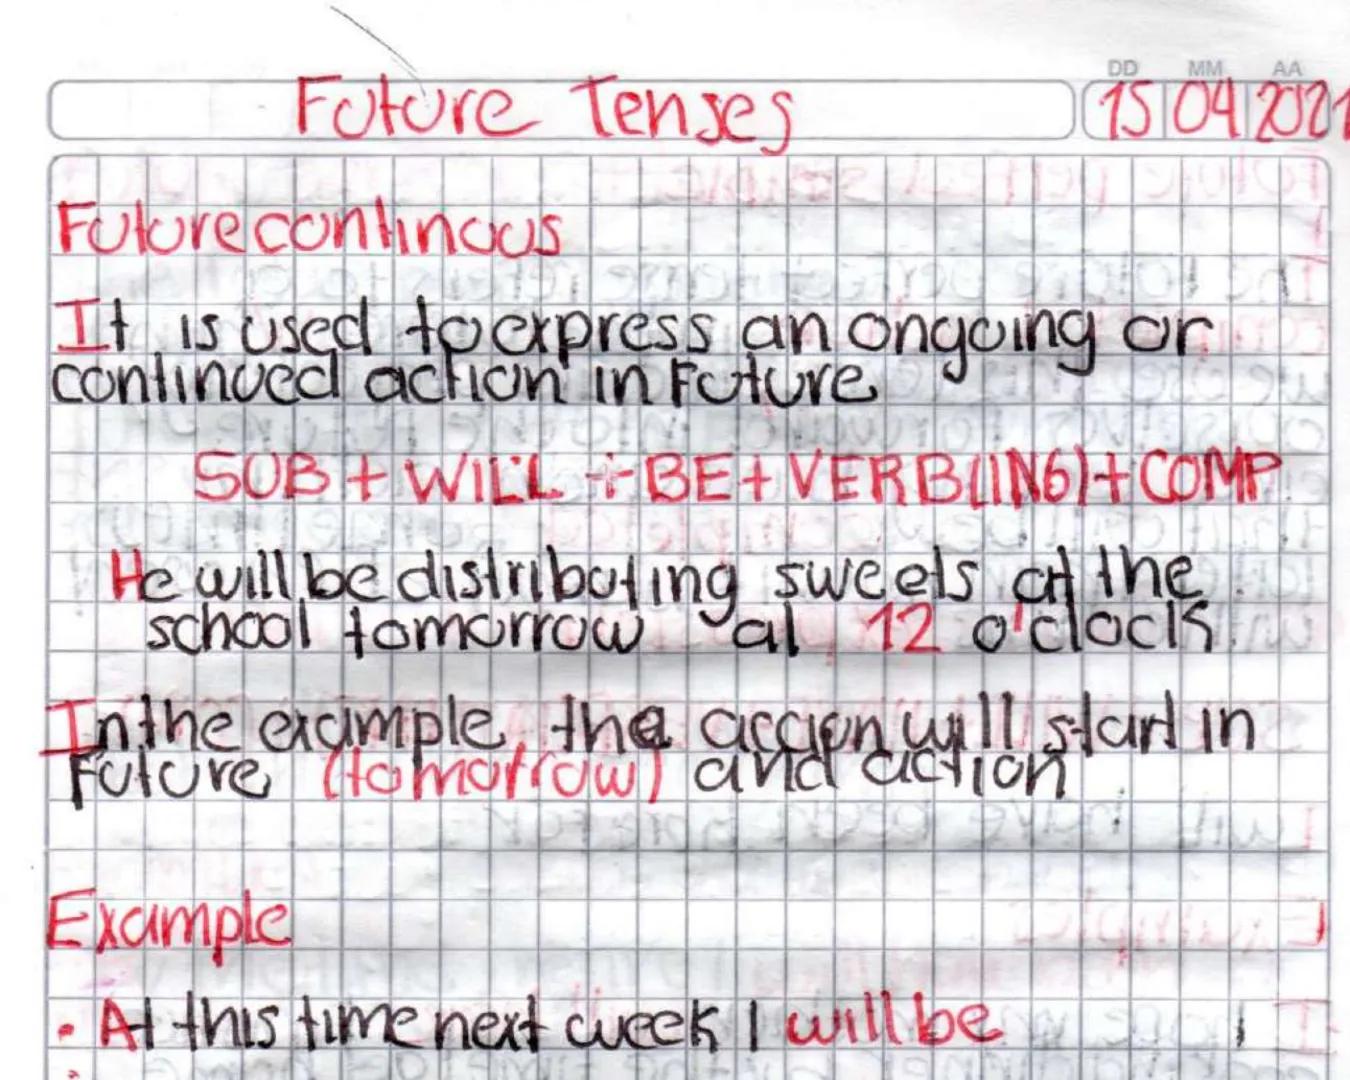 DD MM AA
Future Tenses 15 04 2021
Future continous
It is used to express an ongoing or
continued action in Future
SUB + WILL + BE + VERB(ING) + COMP
He will be distributing sweets at the
school tomorrow at 12 o'clock
In the example, the accion will start in
Future (tomorrow) and action
Example
• At this time next week I will be